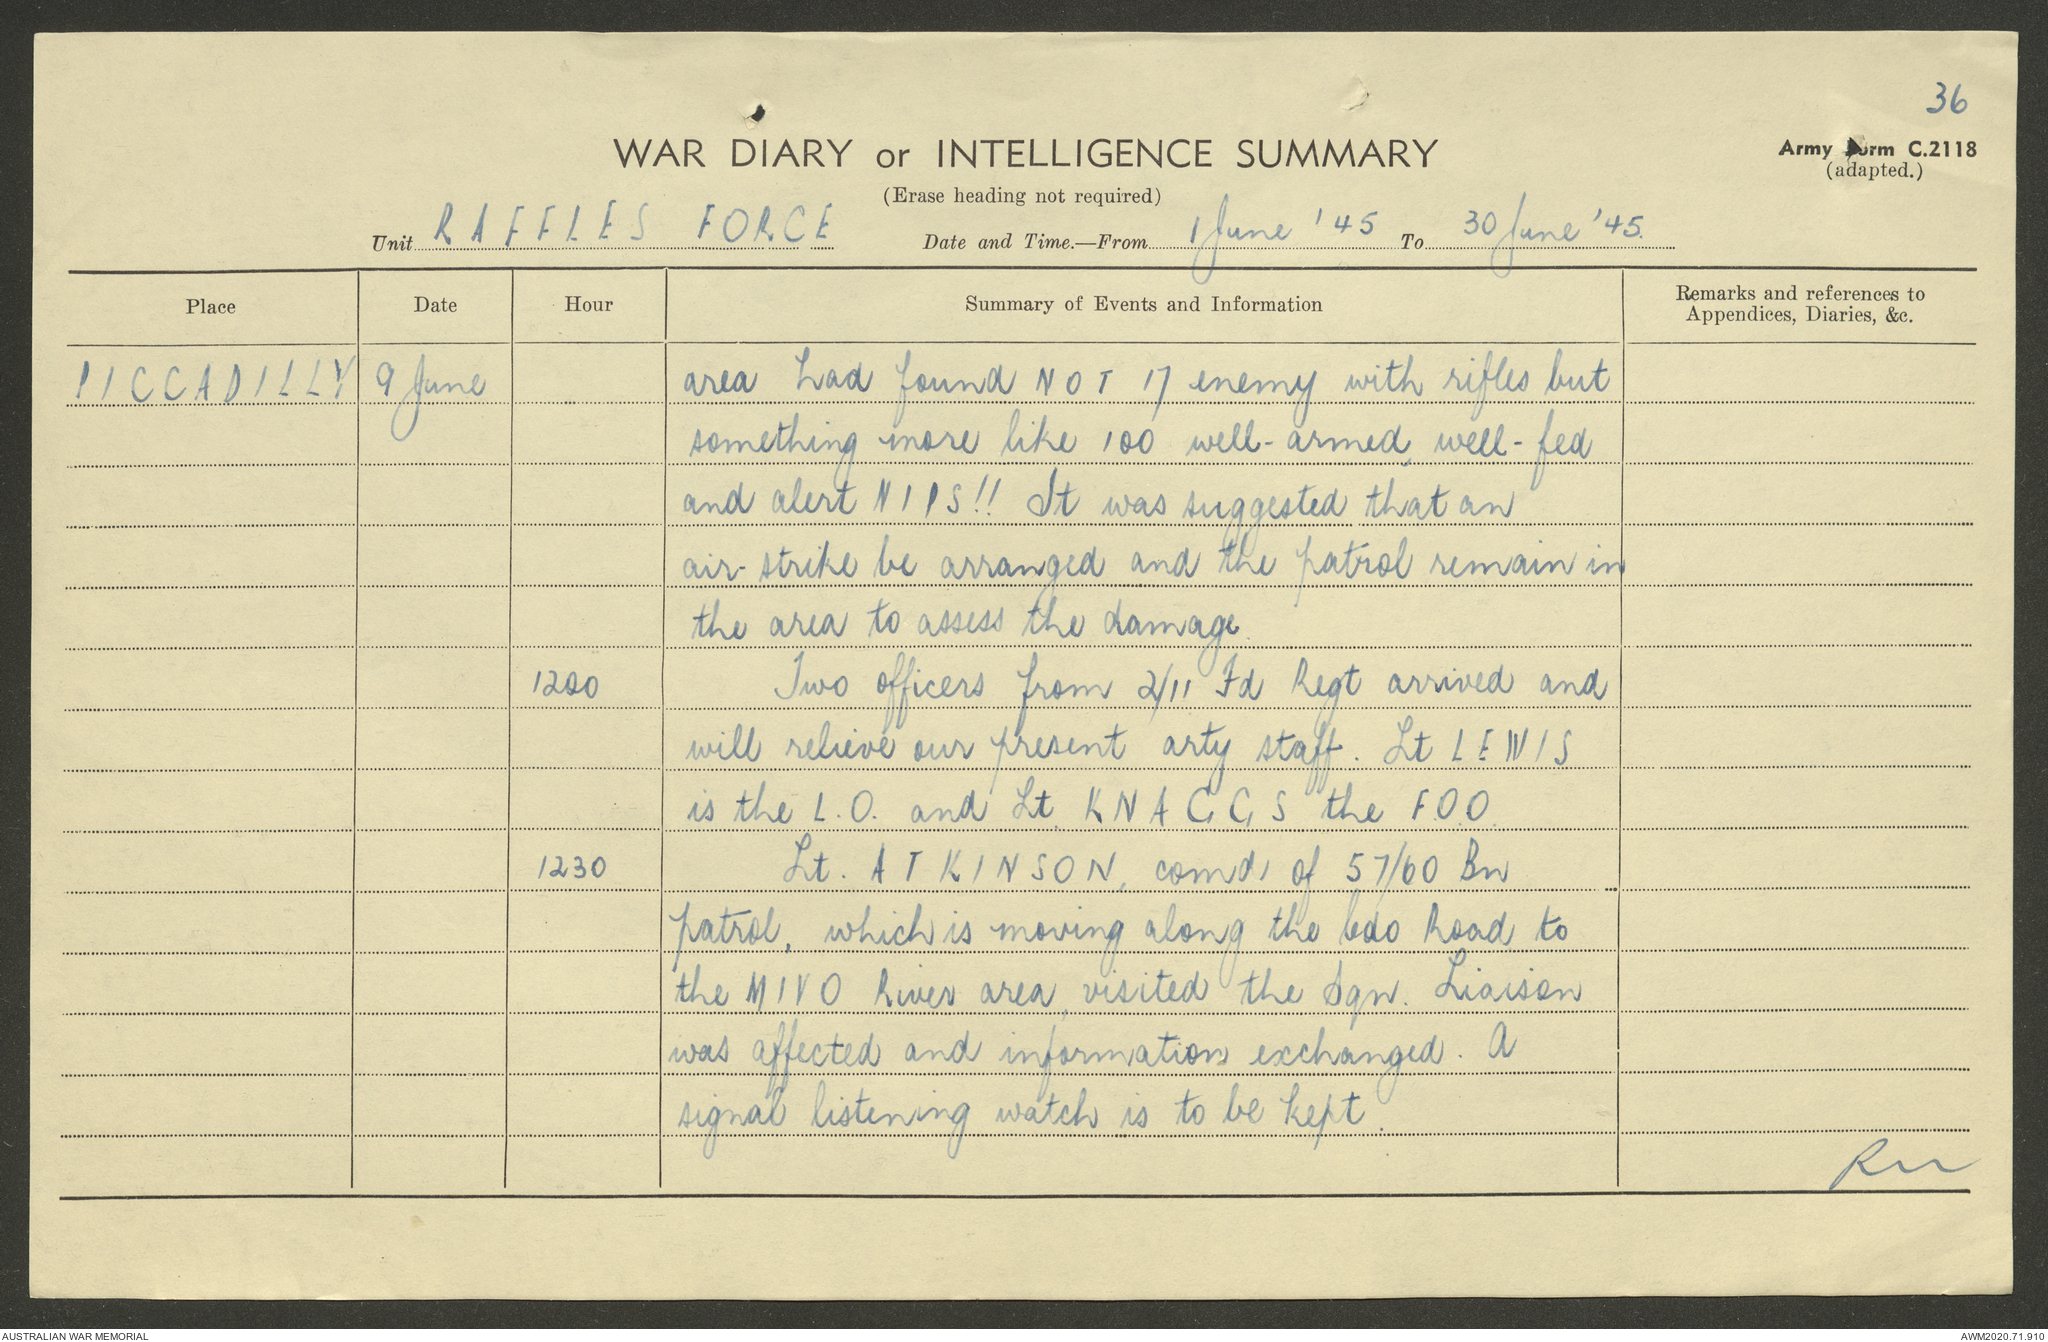 36
WAR DIARY or INTELLIGENCE SUMMARY
Army Form C.2118
(adapted.)
(Erase heading not required)
Unit RAFFLES FORCE Date and Time.—From 1 June '45 To 30 June '45.
Place Date Hour Summary of Events and Information Remarks and references to Appendices, Diaries, &c.
PICCADILLY 9 June area had found NOT 17 enemy with rifles but
something more like 100 well-armed, well-fed
and alert NIPS!! It was suggested that an
air-strike be arranged and the patrol remain in
the area to assess the damage.
1200 Two officers from 2/11 Fd Regt arrived and
will relieve our present arty staff. Lt LEWIS
is the L.O. and Lt. KNAGGS the F.O.O.
1230 Lt. ATKINSON, comd, of 57/60 Bn
patrol, which is moving along the Road to
the MIVO River area, visited the Sqn. Liaison
was affected and information exchanged. A
signal listening watch is to be kept.
AUSTRALIAN WAR MEMORIAL
AWM2020.71.910